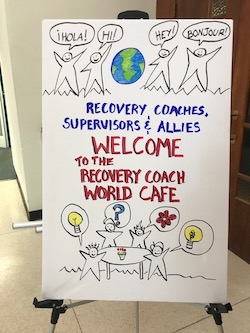 ¡HOLA!
HI!
HEY!
BONJOUR!
RECOVERY COACHES,
SUPERVISORS & ALLIES
WELCOME
TO THE
RECOVERY COACH
WORLD CAFE
?